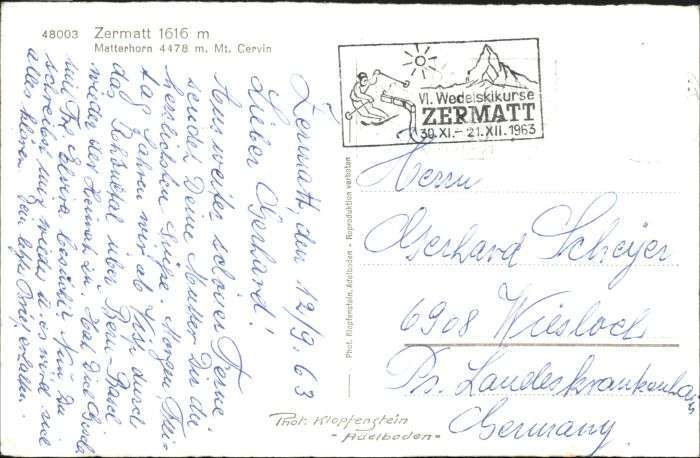 48003 Zermatt 1616 m
Matterhorn 4478 m, Mt. Cervin
Zermatt, den 12/9. 63
Lieber Gerhard!
Aus weiter schöner Ferne
sendet Deine Mutter Dir die
herzlichsten Grüße. Morgen, Frei-
tag fahren wir ab Visp durch
das über Bern - Basel
wieder der Heimat zu. Hat Dich
mit Frl. besucht? Nun Du
schreibst mir wieder u. es wird sich
alles klären. Den Brief erhalten.
VI. Wedelskikurse
ZERMATT
30.XI.-21.XII.1963
Phot. Klopfenstein, Adelboden - Reproduktion verboten
Herrn
Gerhard Scheyer
6908 Wiesloch
Ps. Landeskrankenhaus
Germany
Phot. Klopfenstein
- Adelboden -